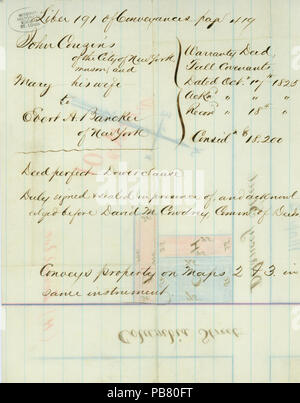 Liber 191 of Conveyances page 419
John Couzens
of the City of New York
mason and
Mary his wife
to
Evert A. Bancker
of New York
Warranty Deed,
Full Covenants
Dated Octr 17th 1825
Ackd " " "
Recd " 18th "
Consid $18.200
Deed perfect — Dower clause
Duly signed & sealed in presence of and acknowl
edged before David M Cowdrey Commr of Deeds
Conveys property on Maps 2 & 3 in
same instrument
Columbia Street
alamy
PB80FT